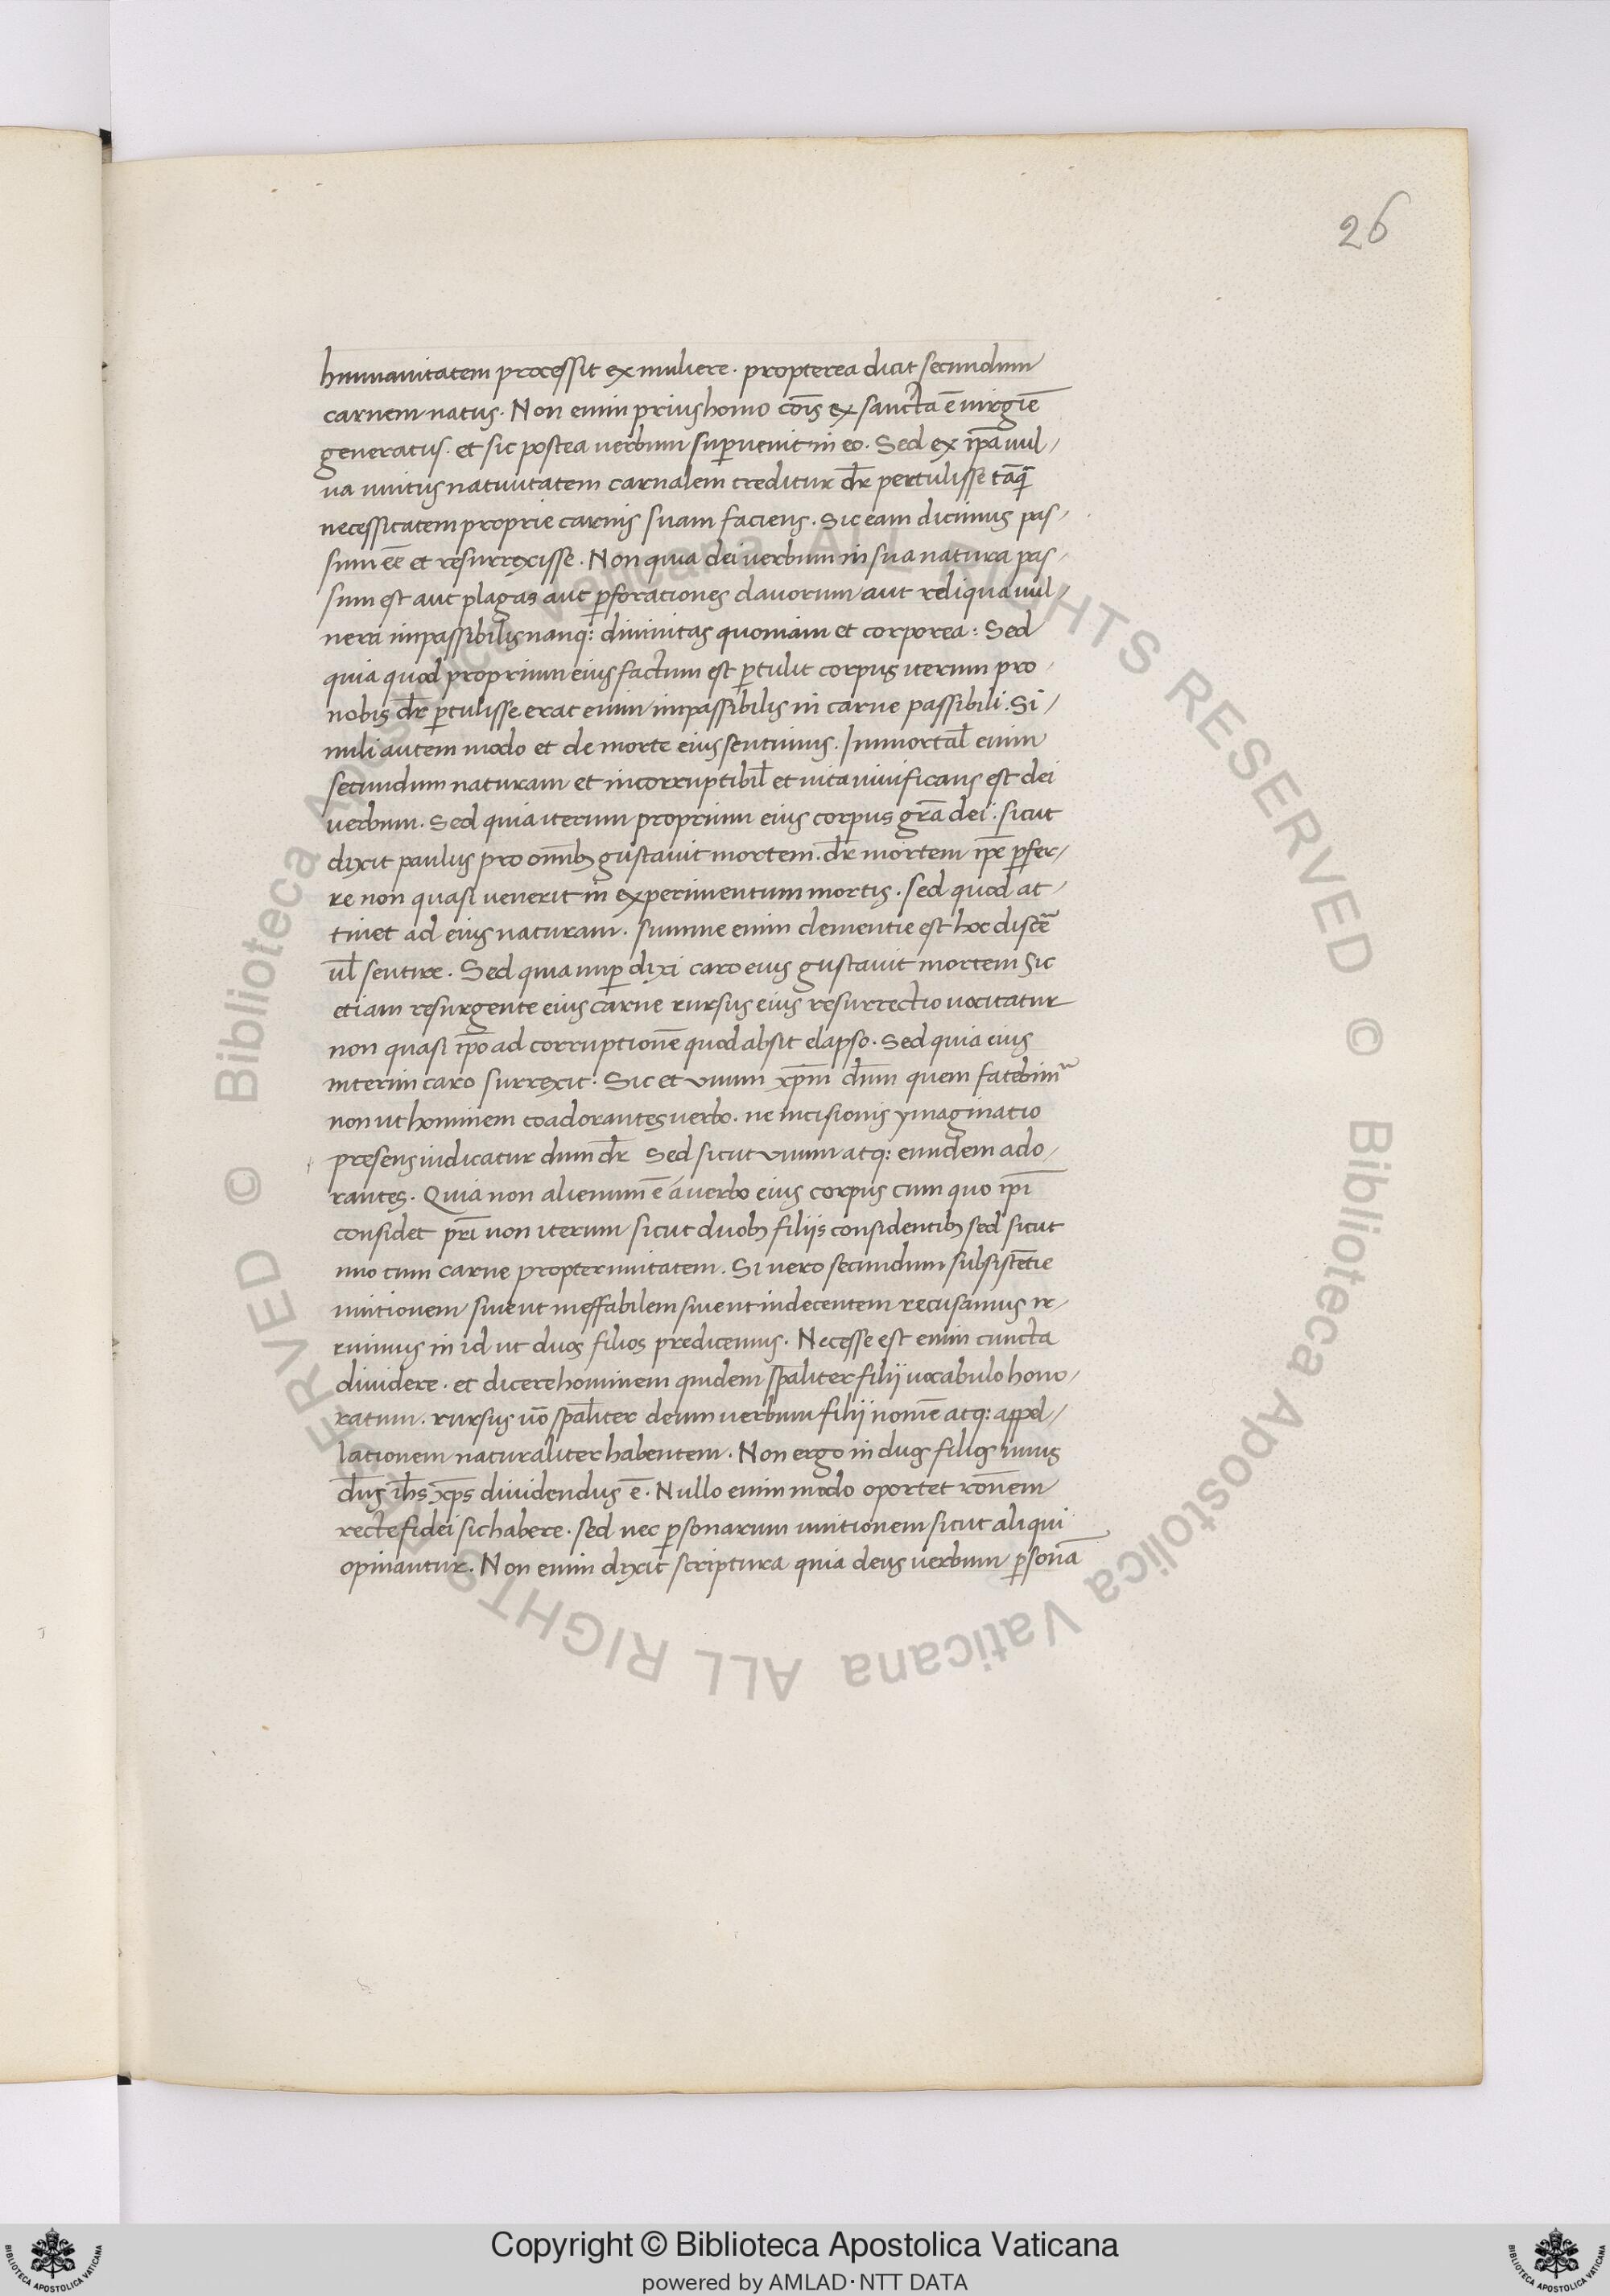 26
humanitatem processit ex muliere · propterea dicit secundum
carnem natus · Non enim prius homo cōis ex sancta ē uirgiē
generatus · et sic postea uerbum suꝑuenit in eo · Sed ex ip̄a uul/
ua unitus natiuitatem carnalem creditur dr̄ pertulisse tāq̄
necessitatem proprie carnis suam faciens · Sic eam dicimus pas/
sum eē et resurrexisse · Non quia dei uerbum in sua natura pas/
sum est aut plagas aut ꝑforationes clauorum aut reliqua uul/
nera impassibilis nanq: diuinitas quoniam et corporea : Sed
quia quod proprium eius factum est ꝑtulit corpus iterum pro
nobis dr̄ ꝑtulisse erat enim impassibilis in carne passibili · Si/
mili autem modo et de morte eius sentimus · Inmortal̄ enim
secundum naturam et incorruptibil̄ et uita uiuificans est dei
uerbum · Sed quia iterum proprium eius corpus gr̄a dei · sicut
dixit paulus pro omīb; gustauit mortem · dr̄ mortem ip̄e ꝑfer/
re non quasi uenerit in experimentum mortis · sed quod at/
tinet ad eius naturam · summe enim clementie est hoc discē
ul̄ sentire · Sed quia nuꝑ dixi caro eius gustauit mortem Sic
etiam resurgente eius carne rursus eius resurrectio uocitatur
non quasi ip̄o ad corruptionē quod absit elapso · Sed quia eius
interim caro surrexit · Sic et unum xp̄m dn̄m quem fatebim᷑
non ut hominem coadorantes uerbo · ne incisionis ymaginatio
presens iudicatur dum dr̄ Sed sicut unum atq: eundem ado/
rantes · Quia non alienum ē a uerbo eius corpus cum quo ip̄i
considet pr̄i non iterum sicut duob; filijs considentib; sed sicut
uno cum carne propter unitatem · Si uero secundum subsistētie
unitionem siue ut ineffabilem siue ut indecentem recusamus ir/
ruimus in id ut duos filios predicemus · Necesse est enim cuncta
diuidere · et dicere hominem quidem sp̄aliter filij uocabulo hono/
ratum · rursus uō sp̄aliter deum uerbum filij nomē atq: appel/
lationem naturaliter habentem · Non ergo in duos filios unus
dn̄s ih̄s xp̄s diuidendus ē · Nullo enim modo oportet rōnem
recte fidei sic habere · sed nec ꝑsonarum unitionem sicut aliqui
opinantur · Non enim dixit scriptura quia deus uerbum ꝑsonā
Copyright © Biblioteca Apostolica Vaticana
powered by AMLAD·NTT DATA
© Biblioteca Apostolica Vaticana ALL RIGHTS RESERVED © Biblioteca Apostolica Vaticana ALL RIGHTS RESERVED